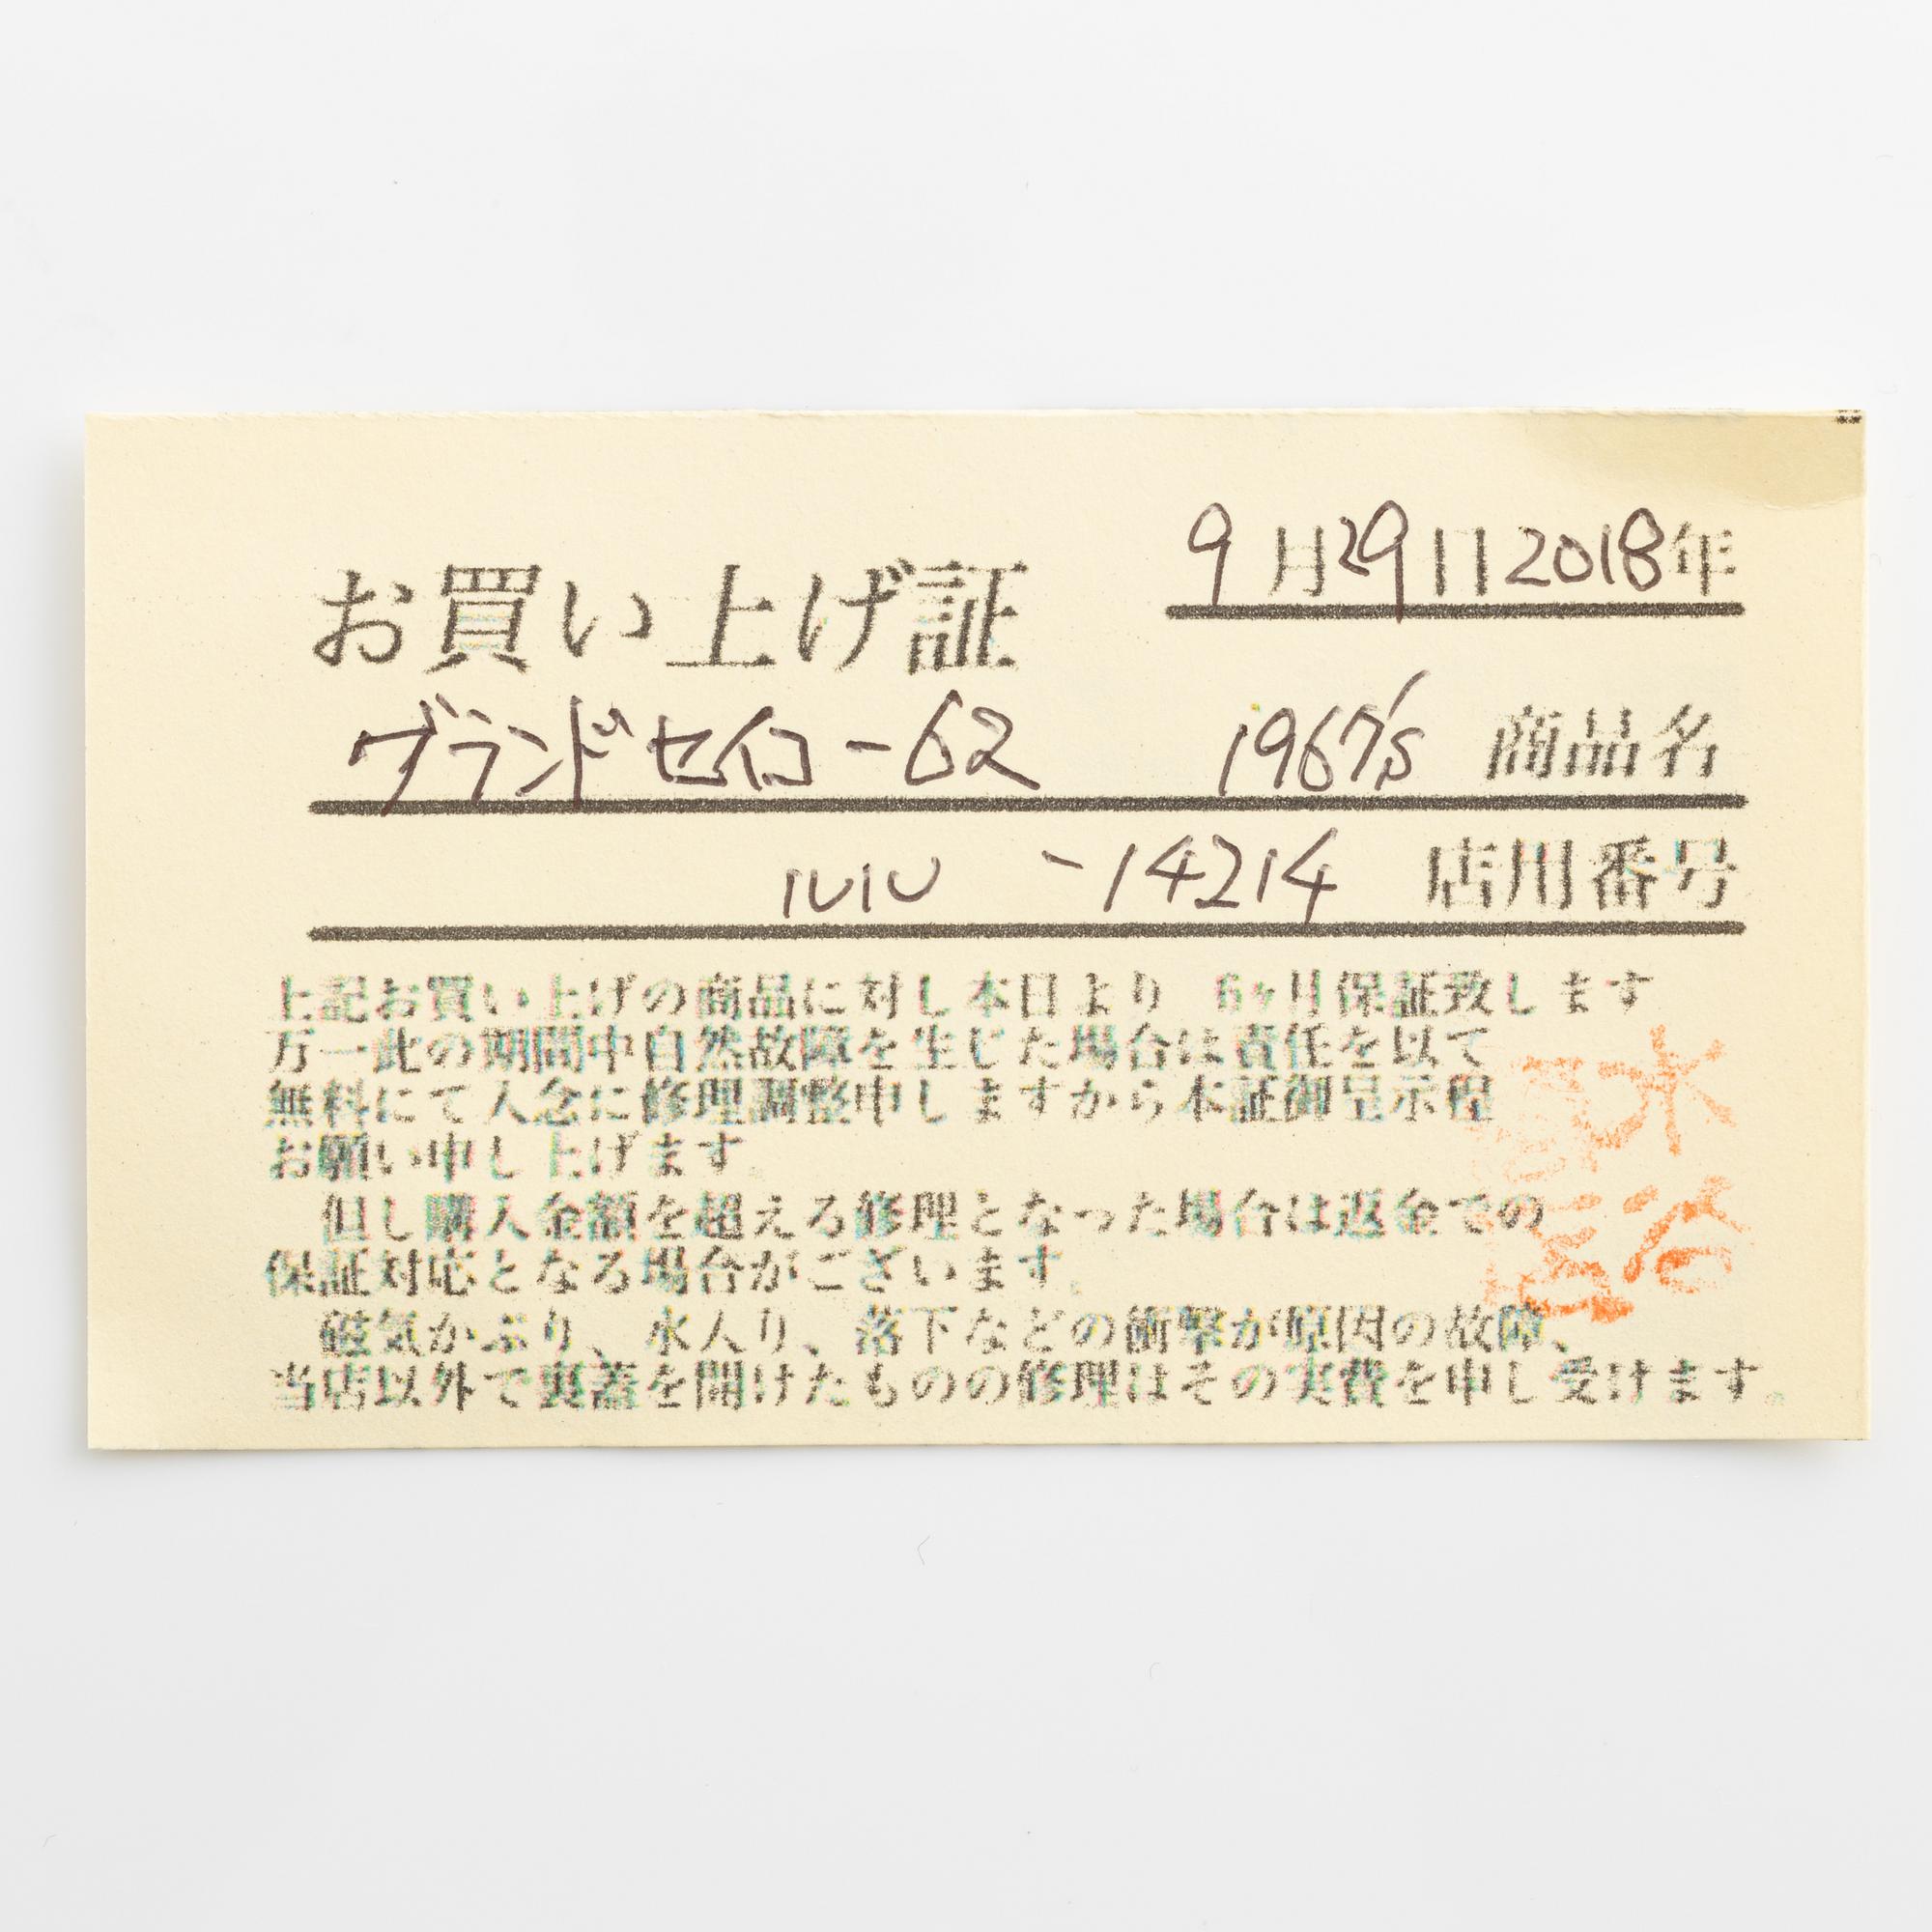 9月29日2018年
お買い上げ証
グランドセイコー62 1967's 商品名
-14214 店用番号
上記お買い上げの商品に対し本日より 6ヶ月保証致します
万一此の期間中自然故障を生じた場合は責任を以て
無料にて入念に修理調整申しますから本証御呈示程
お願い申し上げます。
但し購入金額を超える修理となった場合は返金での
保証対応となる場合がございます。
磁気かぶり、水入り、落下などの衝撃が原因の故障、
当店以外で裏蓋を開けたものの修理はその実費を申し受けます。